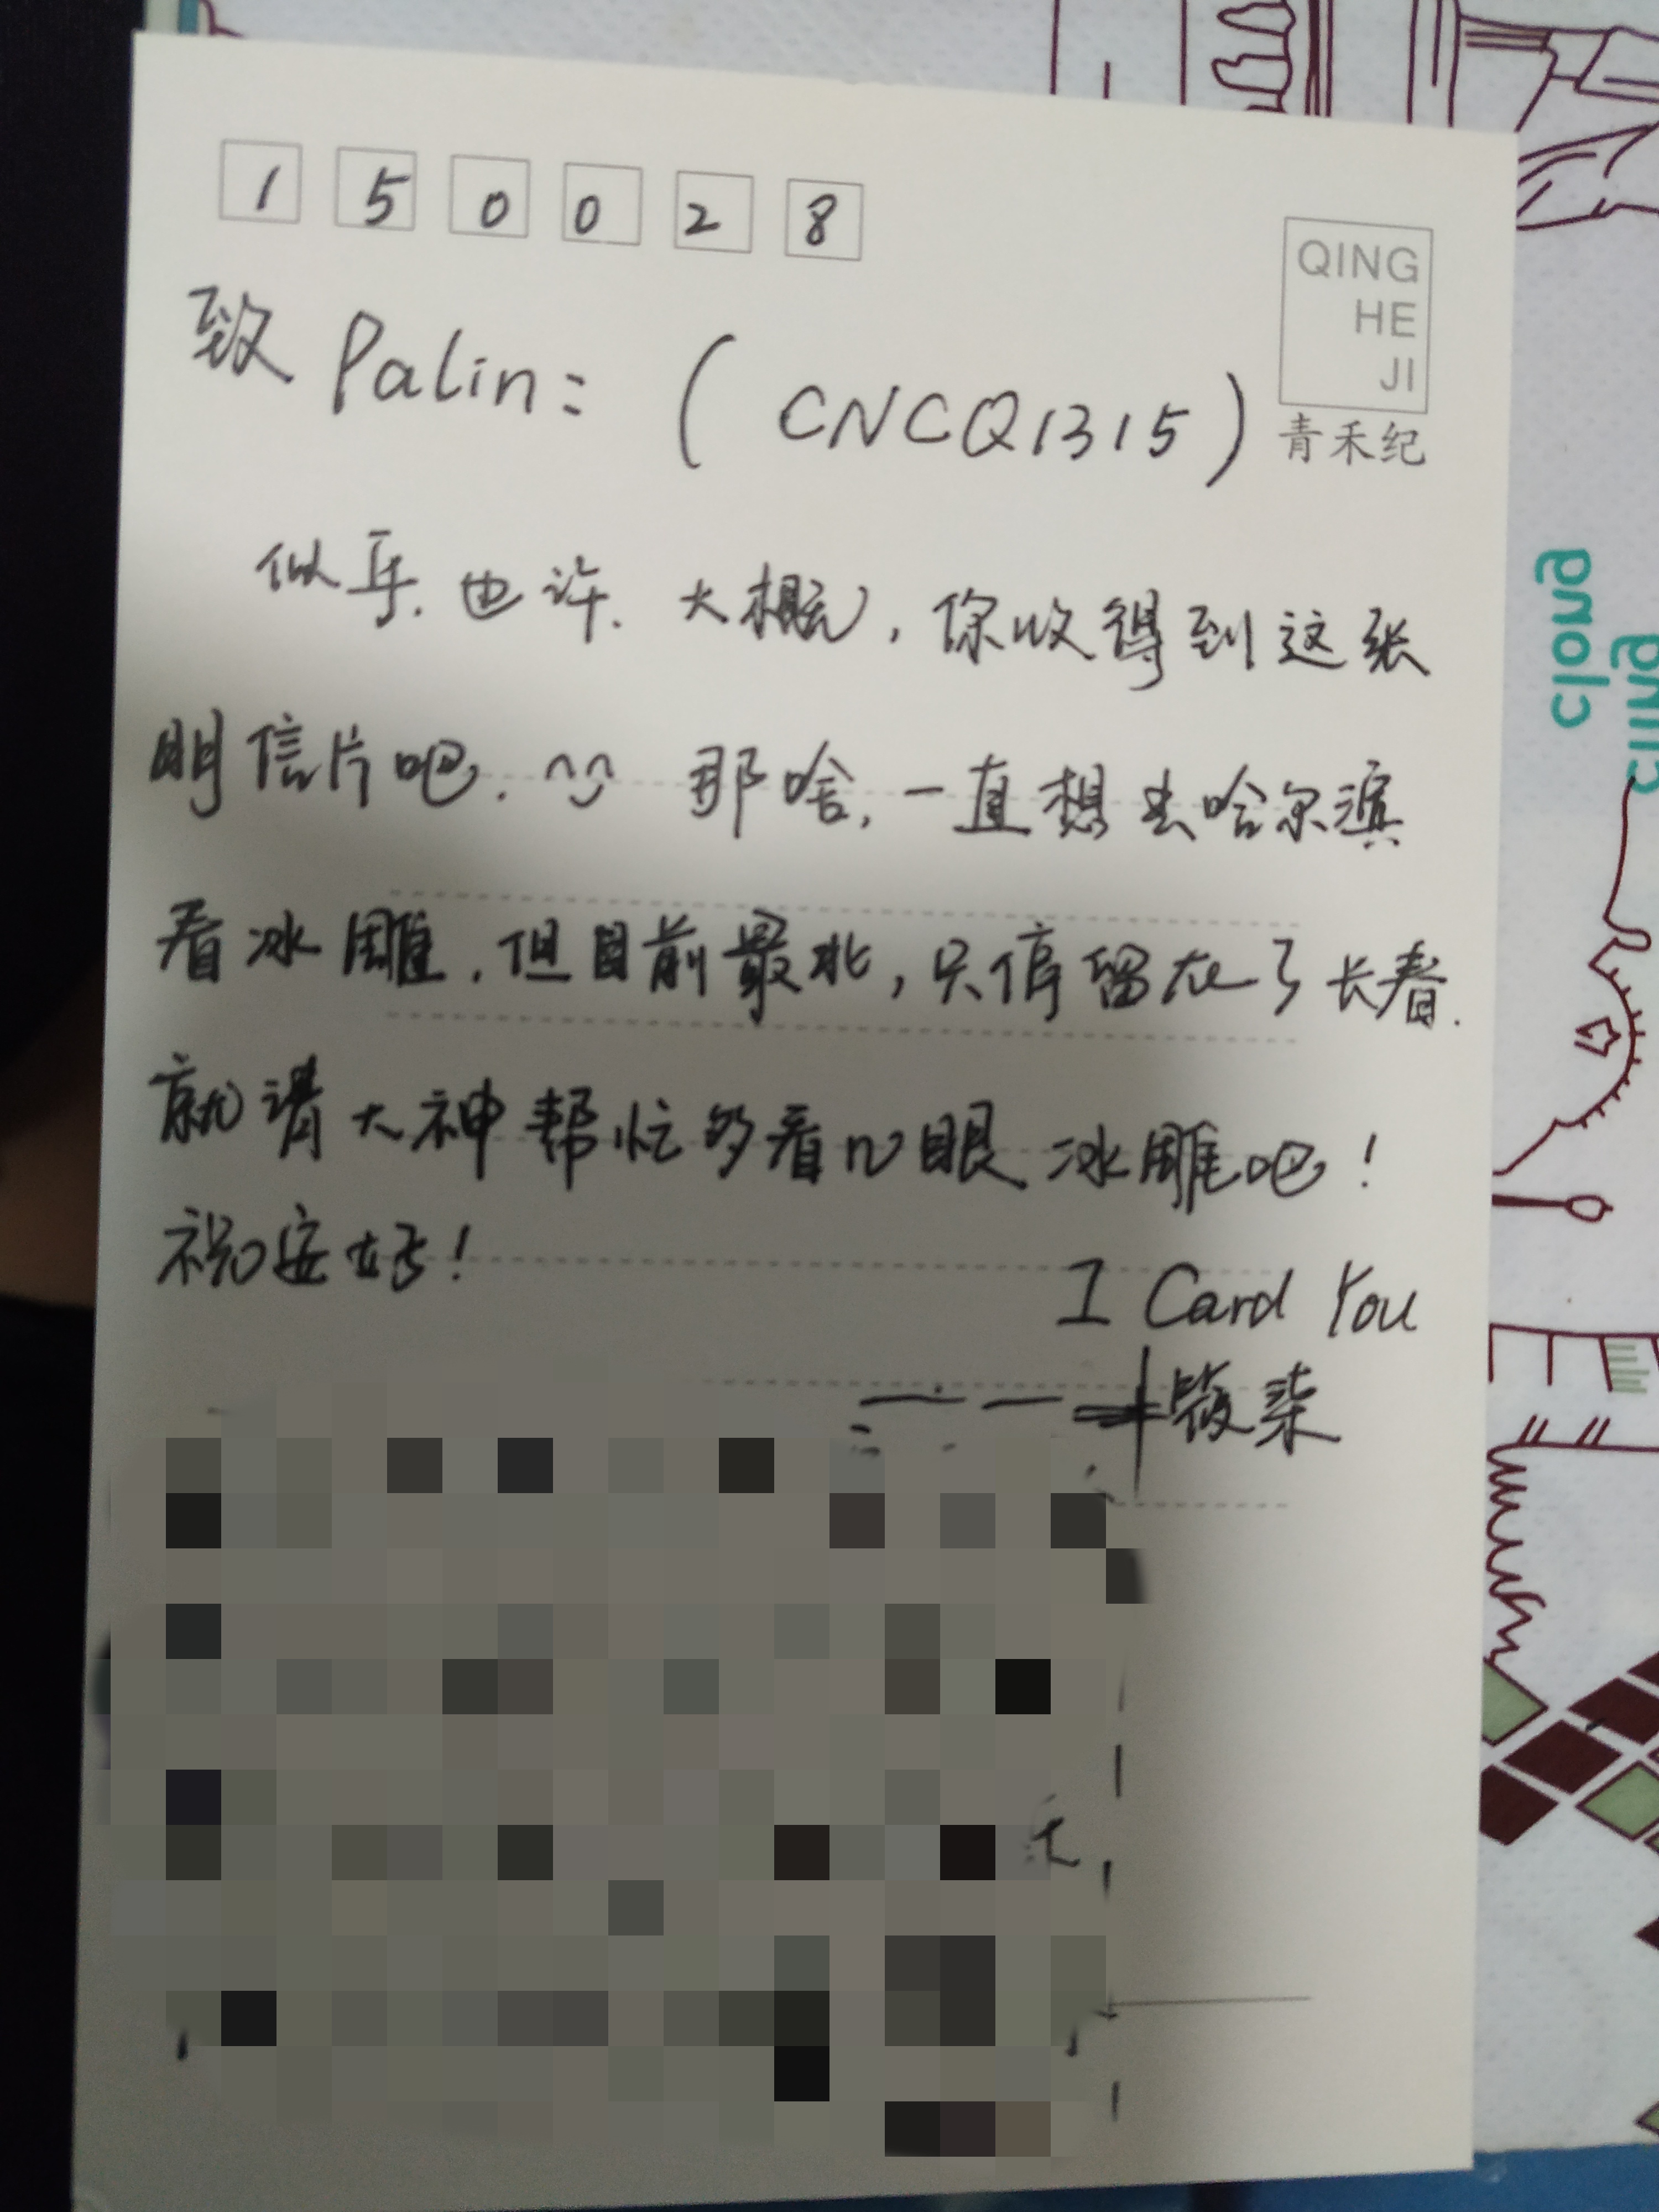 150028
QING
HE
JI
青禾纪
致 Palin: ( CNCQ1315 )
似乎.也许.大概,你收得到这张
明信片吧. 那啥,一直想去哈尔滨
看冰雕.但目前最北,只停留在了长春.
就请大神帮忙多看几眼冰雕吧!
祝安好!
I Card You